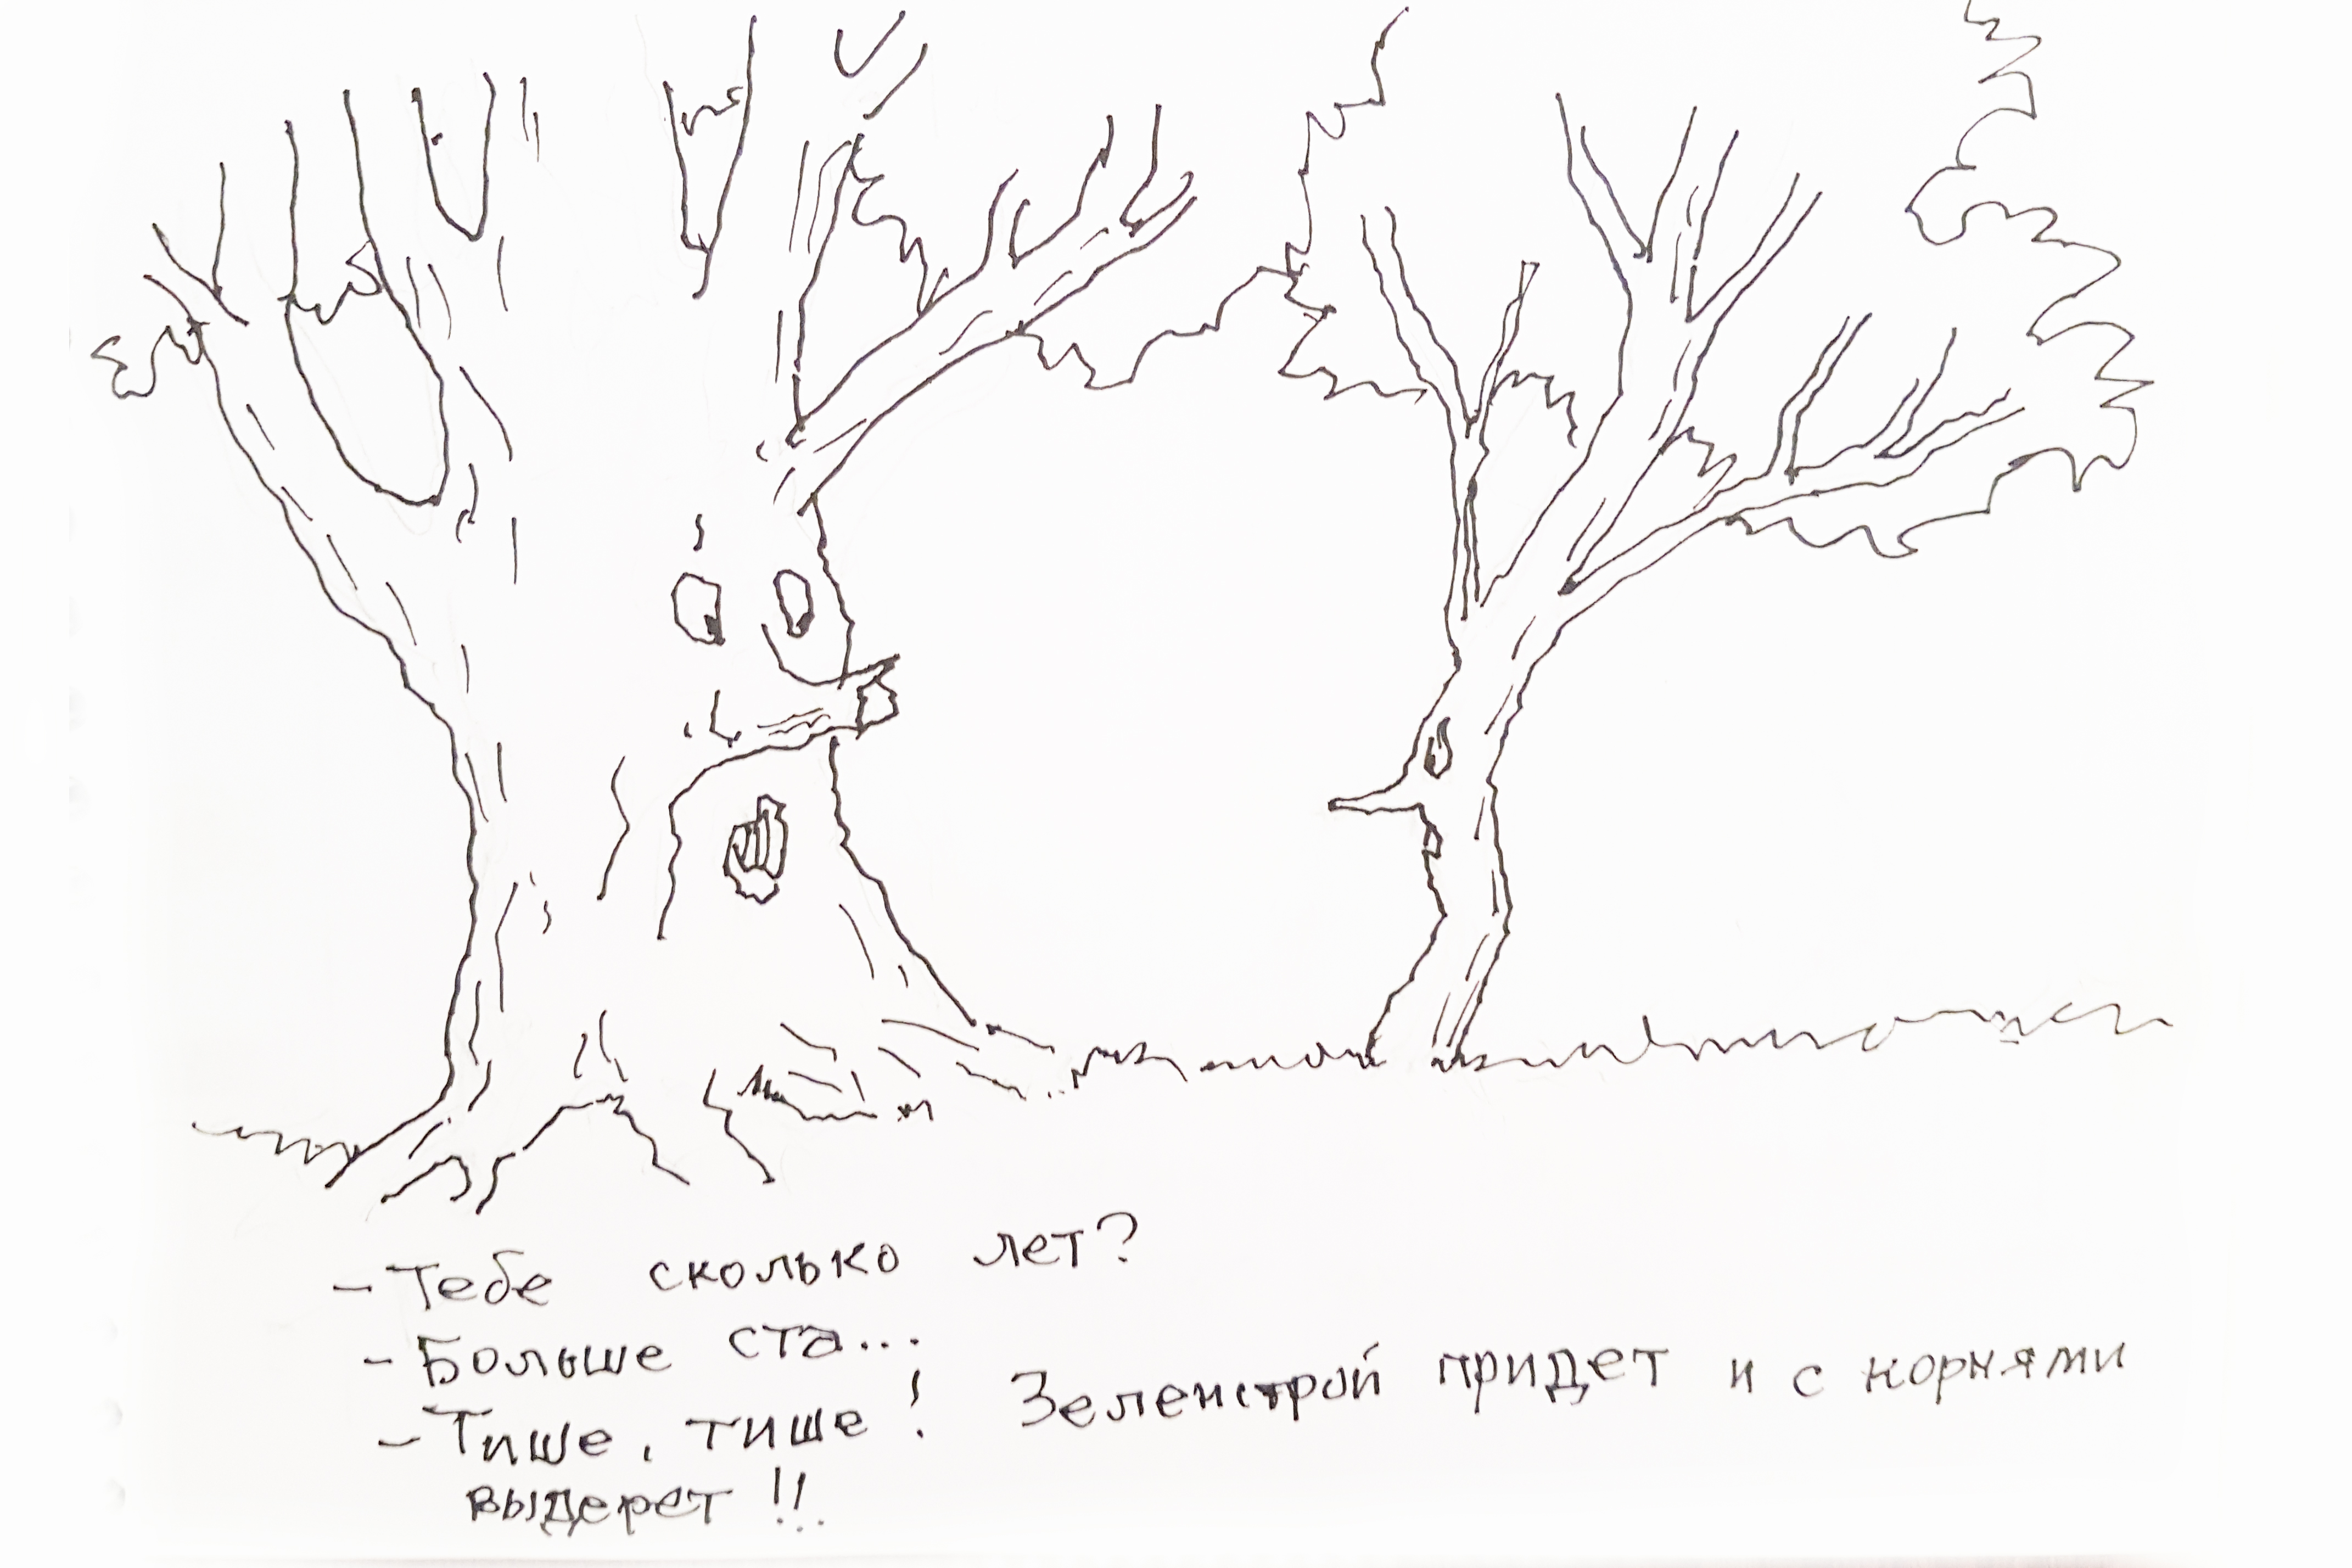 - Тебе сколько лет?
- Больше ста...
- Тише, тише! Зеленстрой придет и с корнями
выдерет!!